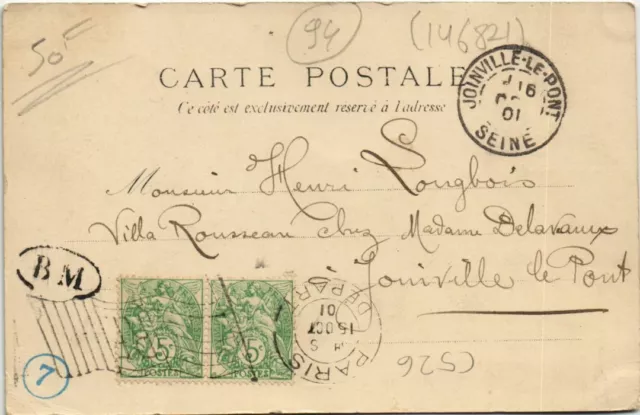 50F
94
(146821)
CARTE POSTALE
Ce côté est exclusivement réservé à l'adresse
JOINVILLE-LE-PONT
16
01
SEINE
Monsieur Henri Longbois
Villa Rousseau Chez Madame Delavaux
Joinville le Pont
BM
5
POSTES
5
POSTES
PARIS
DEPART
15 OCT
01
7
C526